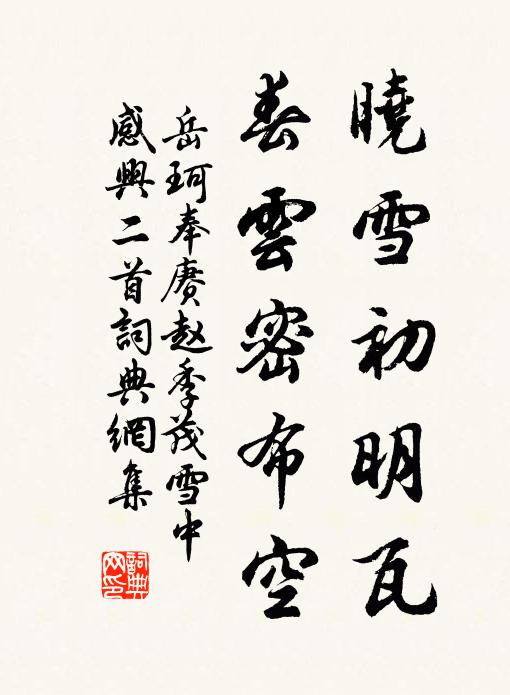 曉雪初明瓦
春雲密布空
岳珂奉賡赵季茂雪中
感興二首詞典網集
詞典
网印